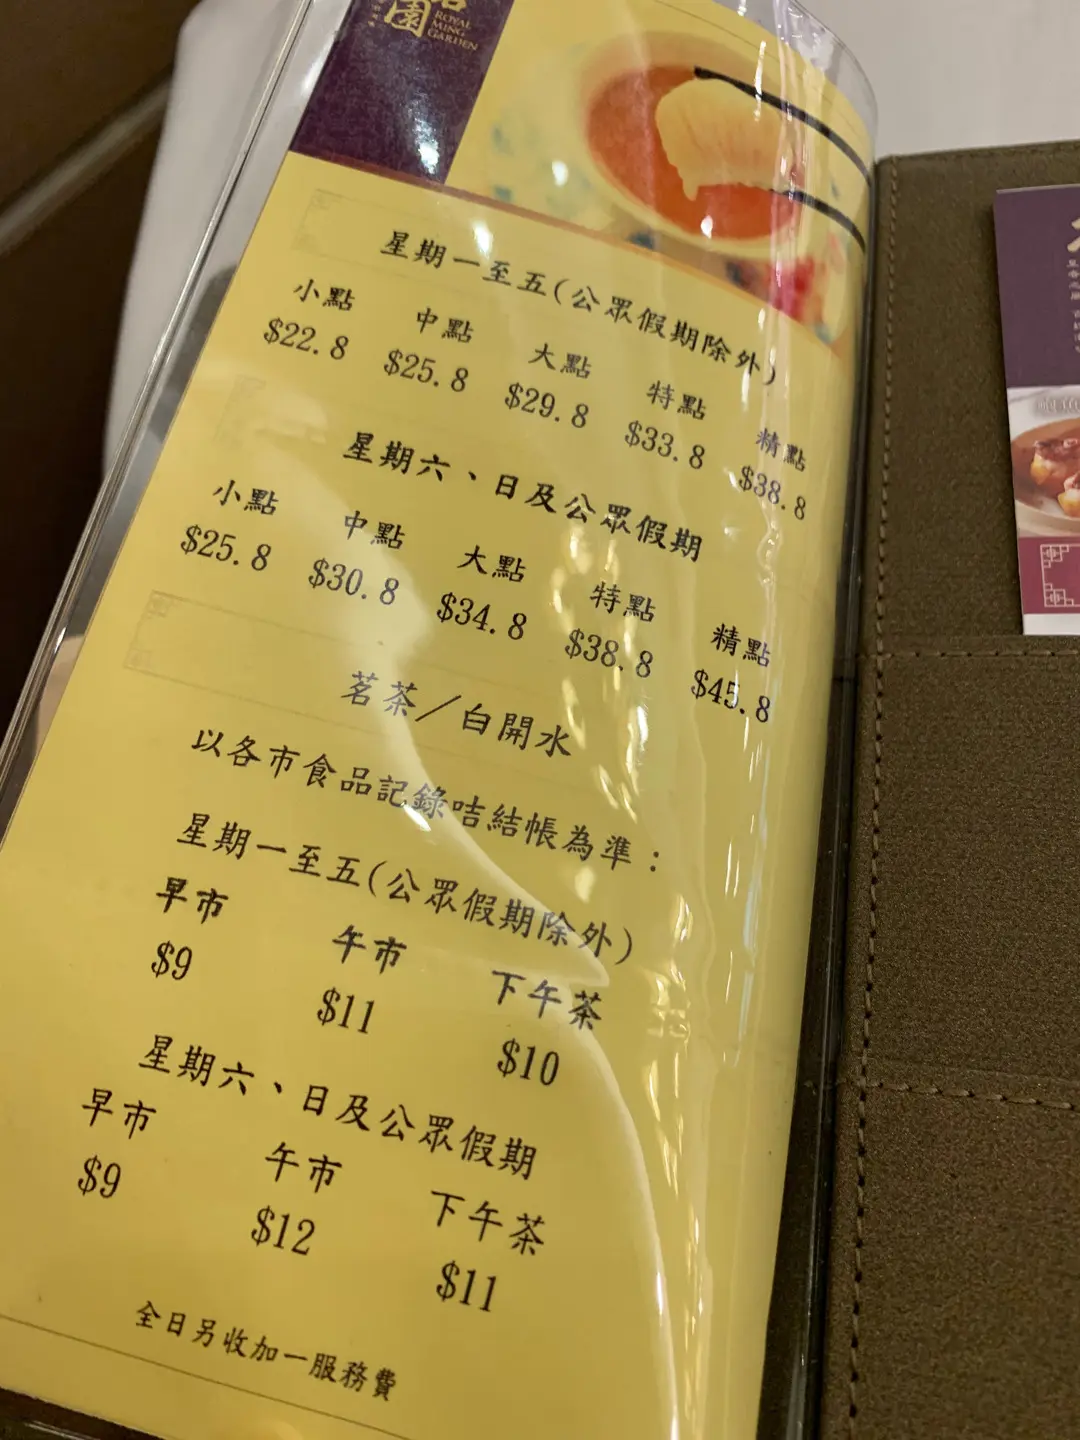 園
ROYAL
MING
GARDEN
星期一至五(公眾假期除外)
小點 中點 大點 特點 精點
$22.8 $25.8 $29.8 $33.8 $38.8
星期六、日及公眾假期
小點 中點 大點 特點 精點
$25.8 $30.8 $34.8 $38.8 $45.8
茗茶/白開水
以各市食品記錄咭結帳為準：
星期一至五(公眾假期除外)
早市 午市 下午茶
$9 $11 $10
星期六、日及公眾假期
早市 午市 下午茶
$9 $12 $11
全日另收加一服務費